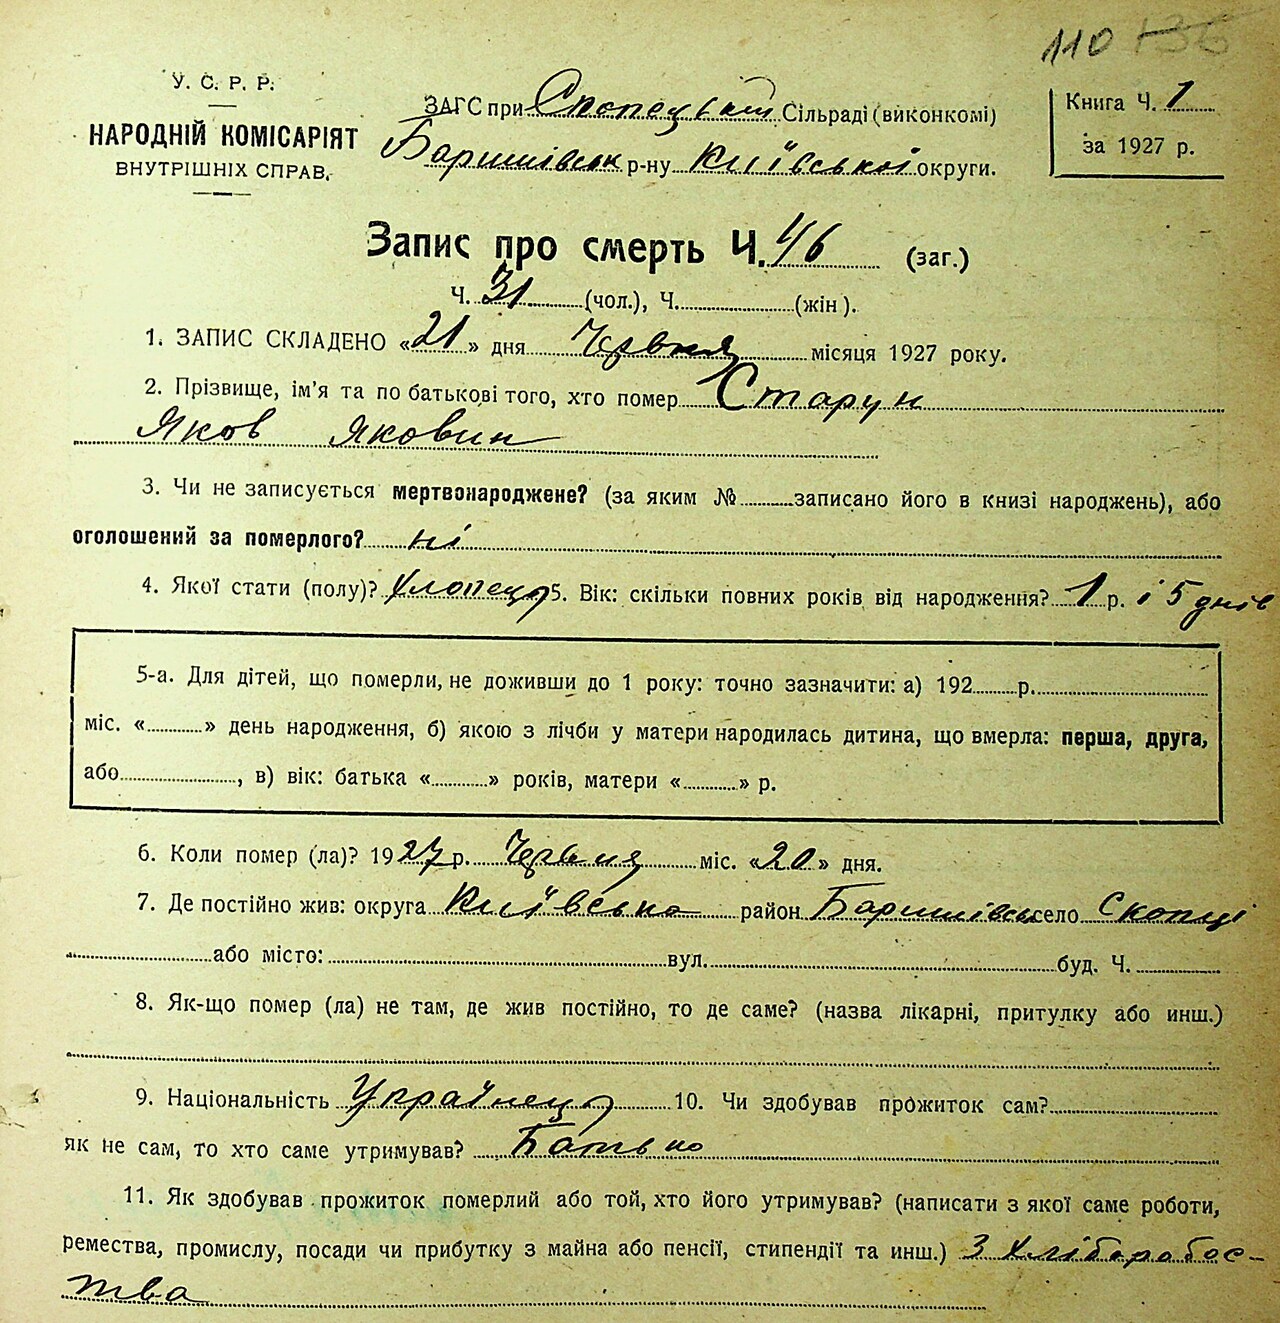 110 136
У. С. Р. Р.
НАРОДНІЙ КОМІСАРІЯТ
ВНУТРІШНІХ СПРАВ.
ЗАГС при Скопецькій Сільраді (виконкомі)
Баришівськ р-ну Київської округи.
Книга Ч. 1
за 1927 р.
Запис про смерть Ч. 46 (заг.)
Ч. 31 (чол.), Ч. (жін).
1. ЗАПИС СКЛАДЕНО «21» дня Червня місяця 1927 року.
2. Прізвище, ім'я та по батькові того, хто помер Старун
Яков Яковин
3. Чи не записується мертвонароджене? (за яким № записано його в книзі народжень), або
оголошений за померлого? ні
4. Якої стати (полу)? Хлопець 5. Вік: скільки повних років від народження? 1 р. і 5 днів
5-а. Для дітей, що померли, не доживши до 1 року: точно зазначити: а) 192 р.
міс. « » день народження, б) якою з лічби у матери народилась дитина, що вмерла: перша, друга,
або , в) вік: батька « » років, матери « » р.
6. Коли помер (ла)? 1927 р. Червня міс. «20» дня.
7. Де постійно жив: округа Київська район Баришівськ село Скопці
або місто: вул. буд. Ч.
8. Як-що помер (ла) не там, де жив постійно, то де саме? (назва лікарні, притулку або инш.)
9. Національність Українець 10. Чи здобував прожиток сам?
як не сам, то хто саме утримував? Батько
11. Як здобував прожиток померлий або той, хто його утримував? (написати з якої саме роботи,
ремества, промислу, посади чи прибутку з майна або пенсії, стипендії та инш.) З Хліборобос-
тва